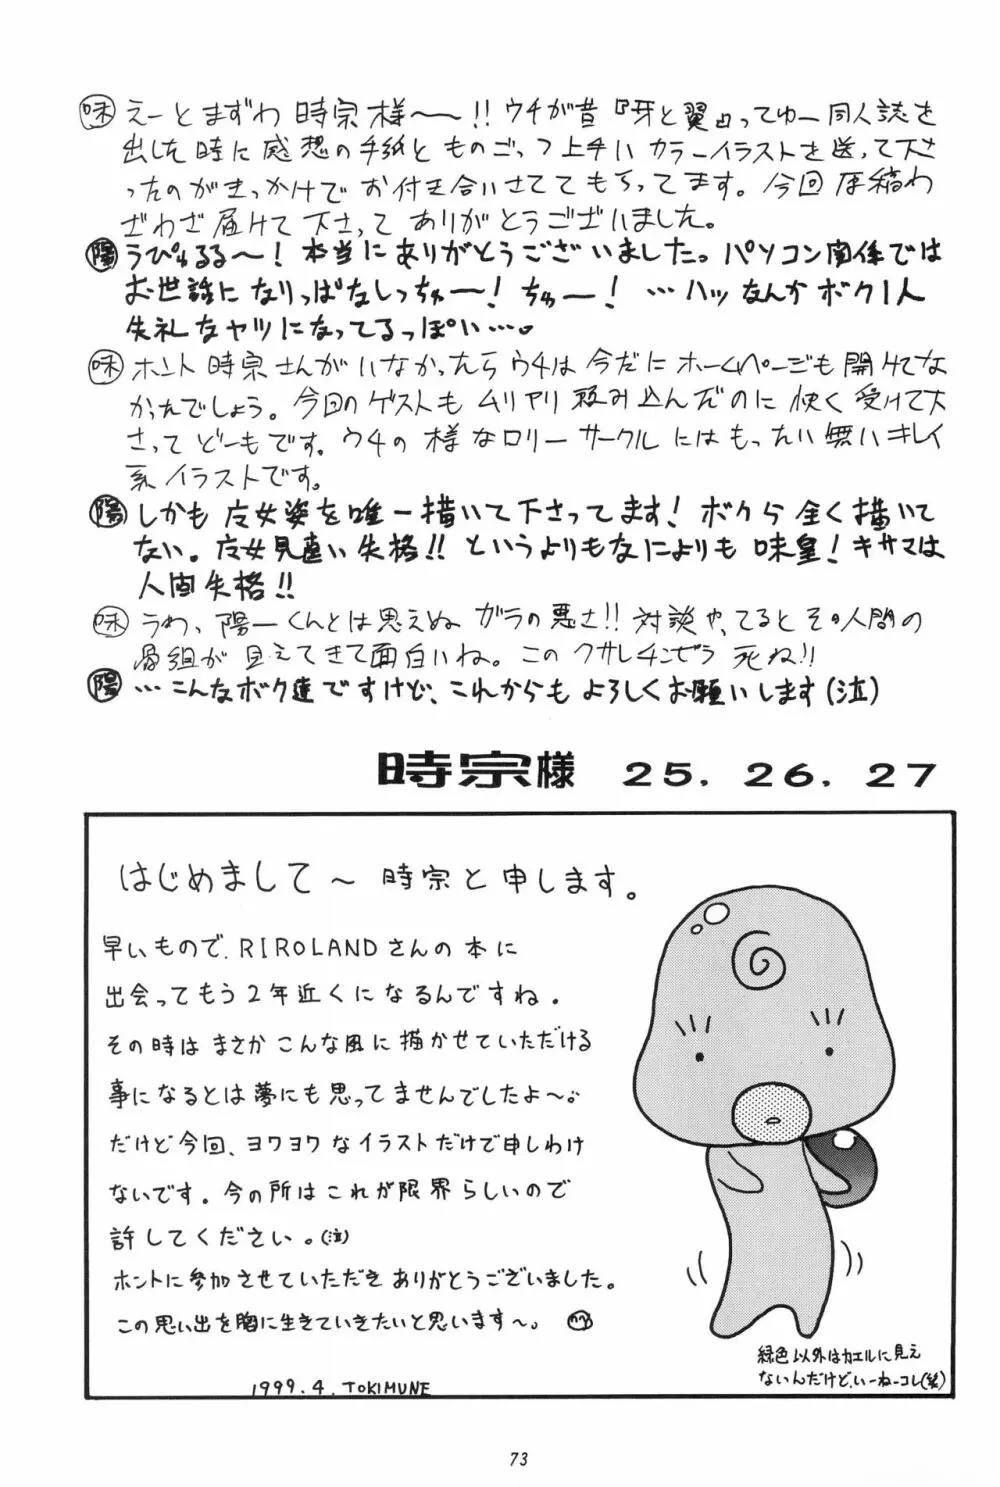 味 えーとまずわ 時宗様〜〜!! ウチが昔『牙と翼』ってゆー同人誌を
出した時に感想の手紙とものごっつ上手いカラーイラストを送って下さ
ったのがきっかけでお付き合いさせてもらってます。今回原稿わ
ざわざ届けて下さってありがとうございました。
陽 うぴゅるる〜! 本当にありがとうございました。パソコン関係では
お世話になりっぱなしっちゅー! ちゅー! …ハッなんかボク1人
失礼なヤツになってるっぽい…。
味 ホント時宗さんがいなかったらウチは今だにホームページも開けてな
かったでしょう。今回のゲストもムリヤリ頼み込んだのに快く受けて下
さってどーもです。ウチの様なロリーサークルにはもったい無いキレイ
系イラストです。
陽 しかも庋女姿を唯一描いて下さってます! ボクら全く描いて
ない。庋女見直い失格!! というよりもなによりも味皇! キサマは
人間失格!!
味 うわ、陽一くんとは思えぬガラの悪さ!! 対談やってるとその人間の
骨組が見えてきて面白いね。このクサレチンゼラ死ね!!
陽 …こんなボク達ですけど、これからもよろしくお願いします(泣)
時宗様 25. 26. 27
はじめまして〜 時宗と申します。
早いもので、RIROLANDさんの本に
出会ってもう2年近くになるんですね。
その時はまさかこんな風に描かせていただける
事になるとは夢にも思ってませんでしたよ〜。
だけど今回、ヨワヨワなイラストだけで申しわけ
ないです。今の所はこれが限界らしいので
許してください。(泣)
ホントに参加させていただきありがとうございました。
この思い出を胸に生きていきたいと思います〜。
1999.4. TOKIMUNE
緑色以外はカエルに見え
ないんだけど、いーねーコレ(笑)
73